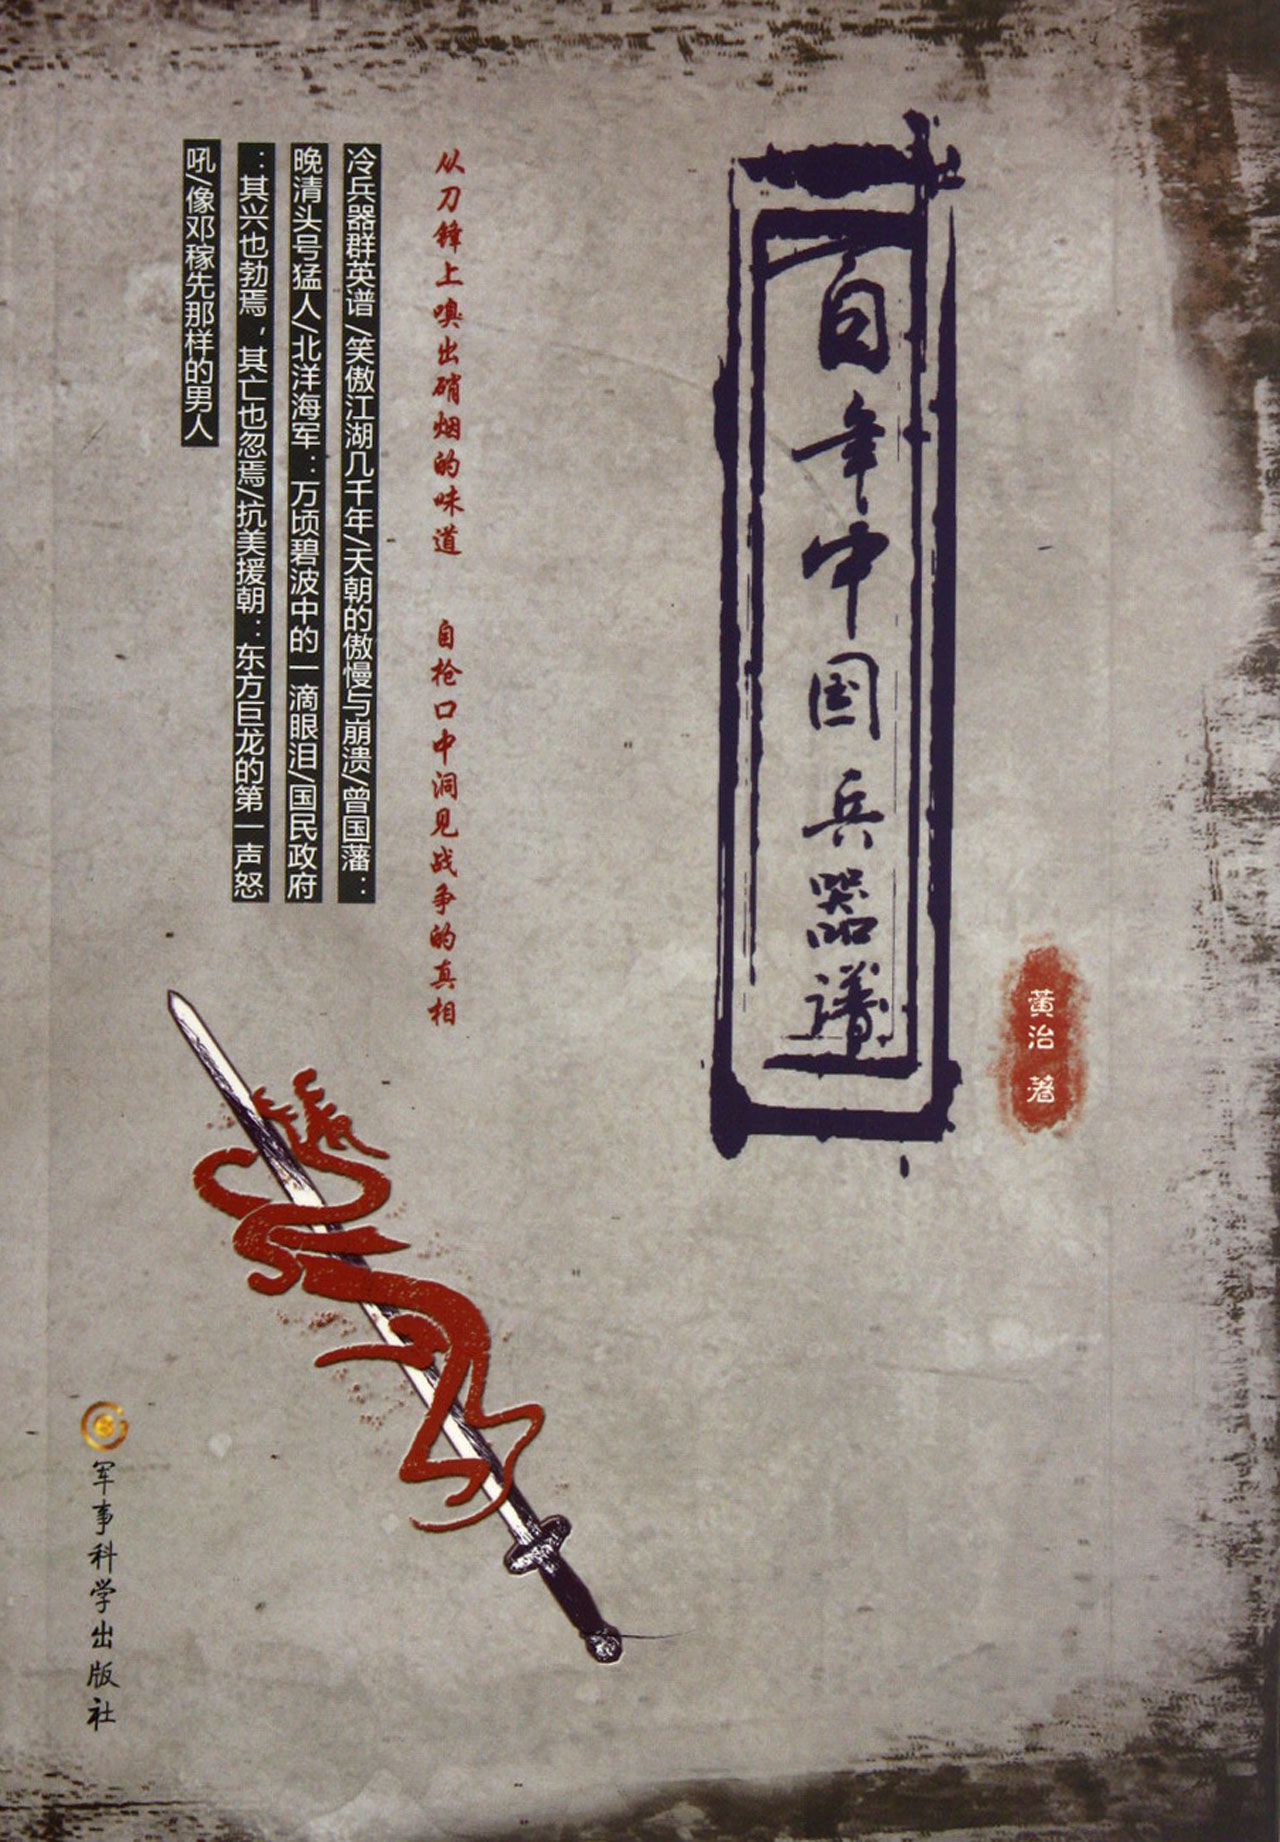 黄治 著
百年中国兵器谱
从刀锋上嗅出硝烟的味道 自枪口中洞见战争的真相
冷兵器群英谱/笑傲江湖几千年/天朝的傲慢与崩溃/曾国藩：
晚清头号猛人/北洋海军：万顷碧波中的一滴眼泪/国民政府
：其兴也勃焉，其亡也忽焉/抗美援朝：东方巨龙的第一声怒
吼/像邓稼先那样的男人
军事科学出版社